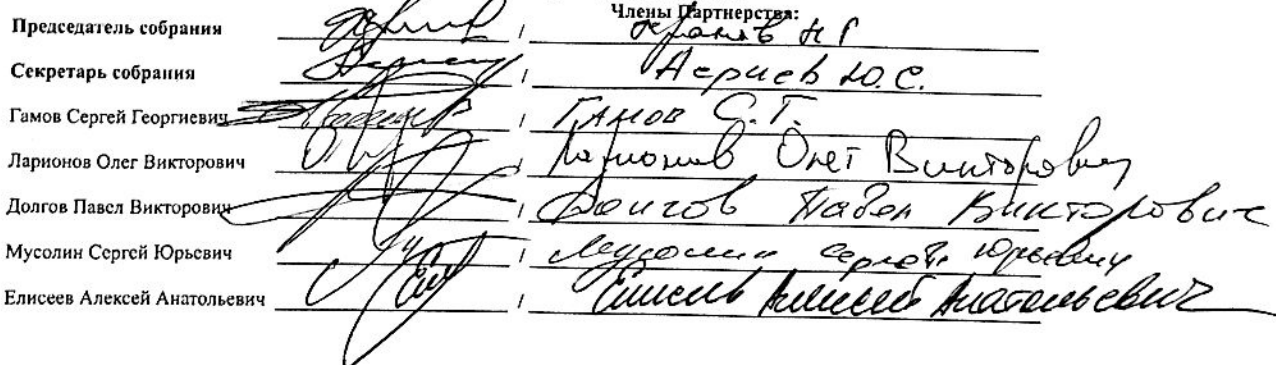 Члены Партнерства:
Председатель собрания / Н Г
Секретарь собрания / Ю.С.
Гамов Сергей Георгиевич / Гамов С.Г.
Ларионов Олег Викторович / Ларионов Олег Викторович
Долгов Павел Викторович / Долгов Павел Викторович
Мусолин Сергей Юрьевич / Мусолин Сергей Юрьевич
Елисеев Алексей Анатольевич / Елисеев Алексей Анатольевич